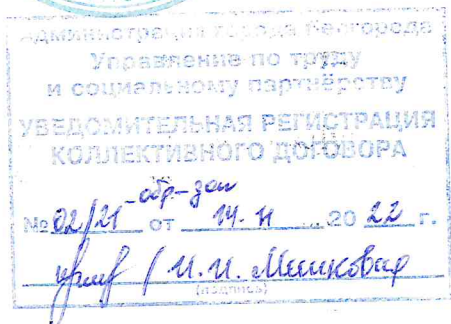 Администрация города Белгорода
Управление по труду
и социальному партнёрству
УВЕДОМИТЕЛЬНАЯ РЕГИСТРАЦИЯ
КОЛЛЕКТИВНОГО ДОГОВОРА
№ 02/21 от 14. 11 20 22 г.
/ И. И.
(подпись)